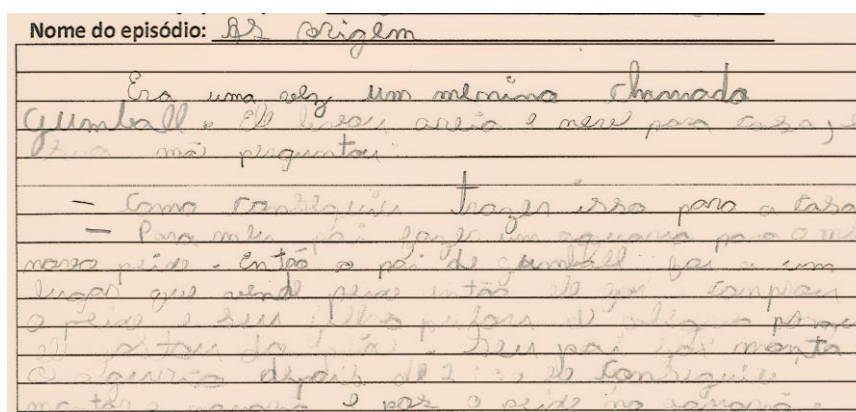 Nome do episódio: As origem
Era uma vez um menino chamado
Gumball. Ele levou areia e neve para casa, e
sua mãe perguntou:
— Como conseguiu trazer isso para a casa
— Para meu pai fazer um aquario para o meu
novo peixe. Então o pai de Gumball foi a um
lugar que vende peixe então ele foi comprar
o peixe e seu filho de alegria porque
ele gostou do . Seu pai foi monta
o depois de 2 ele conseguiu
montar o e pos o peixe no aquario.